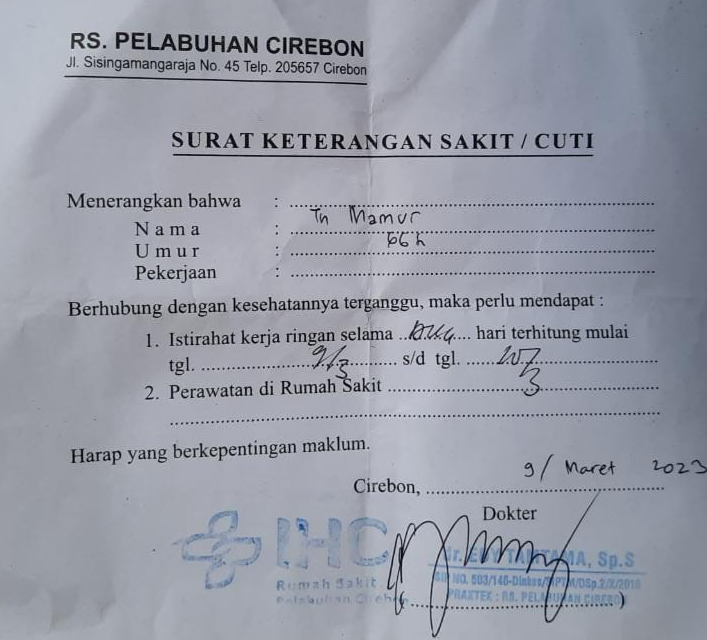 RS. PELABUHAN CIREBON
Jl. Sisingamangaraja No. 45 Telp. 205657 Cirebon
SURAT KETERANGAN SAKIT / CUTI
Menerangkan bahwa : ........................................
N a m a : Tn Mamur
U m u r : 66 h
Pekerjaan : ........................................
Berhubung dengan kesehatannya terganggu, maka perlu mendapat :
1. Istirahat kerja ringan selama .......... hari terhitung mulai
tgl. 9/3 s/d tgl. ..........
2. Perawatan di Rumah Sakit ........................................
Harap yang berkepentingan maklum.
Cirebon, 9 / Maret 2023
Dokter
IHC
Rumah Sakit
Pelabuhan Cirebon
Sp.S
PRAKTEK : RS. PELABUHAN CIREBON